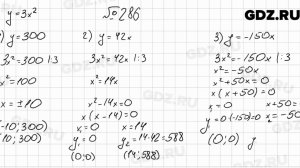 GDZ.RU
y=3x²
№286
y=300
2) y=42x
3) y=-150x
3x²=300 |:3
3x²=42x |:3
3x²=-150x |:3
x²=14x
x²=-50x
x=±10
x²-14x=0
x(x+50)=0
x(x-14)=0
x=0
x+50=
-10;300)
x=0
x=14
10;300)
y=0
y=14·42=588
(0;0)
(0;0)
(14;588)
GDZ.RU